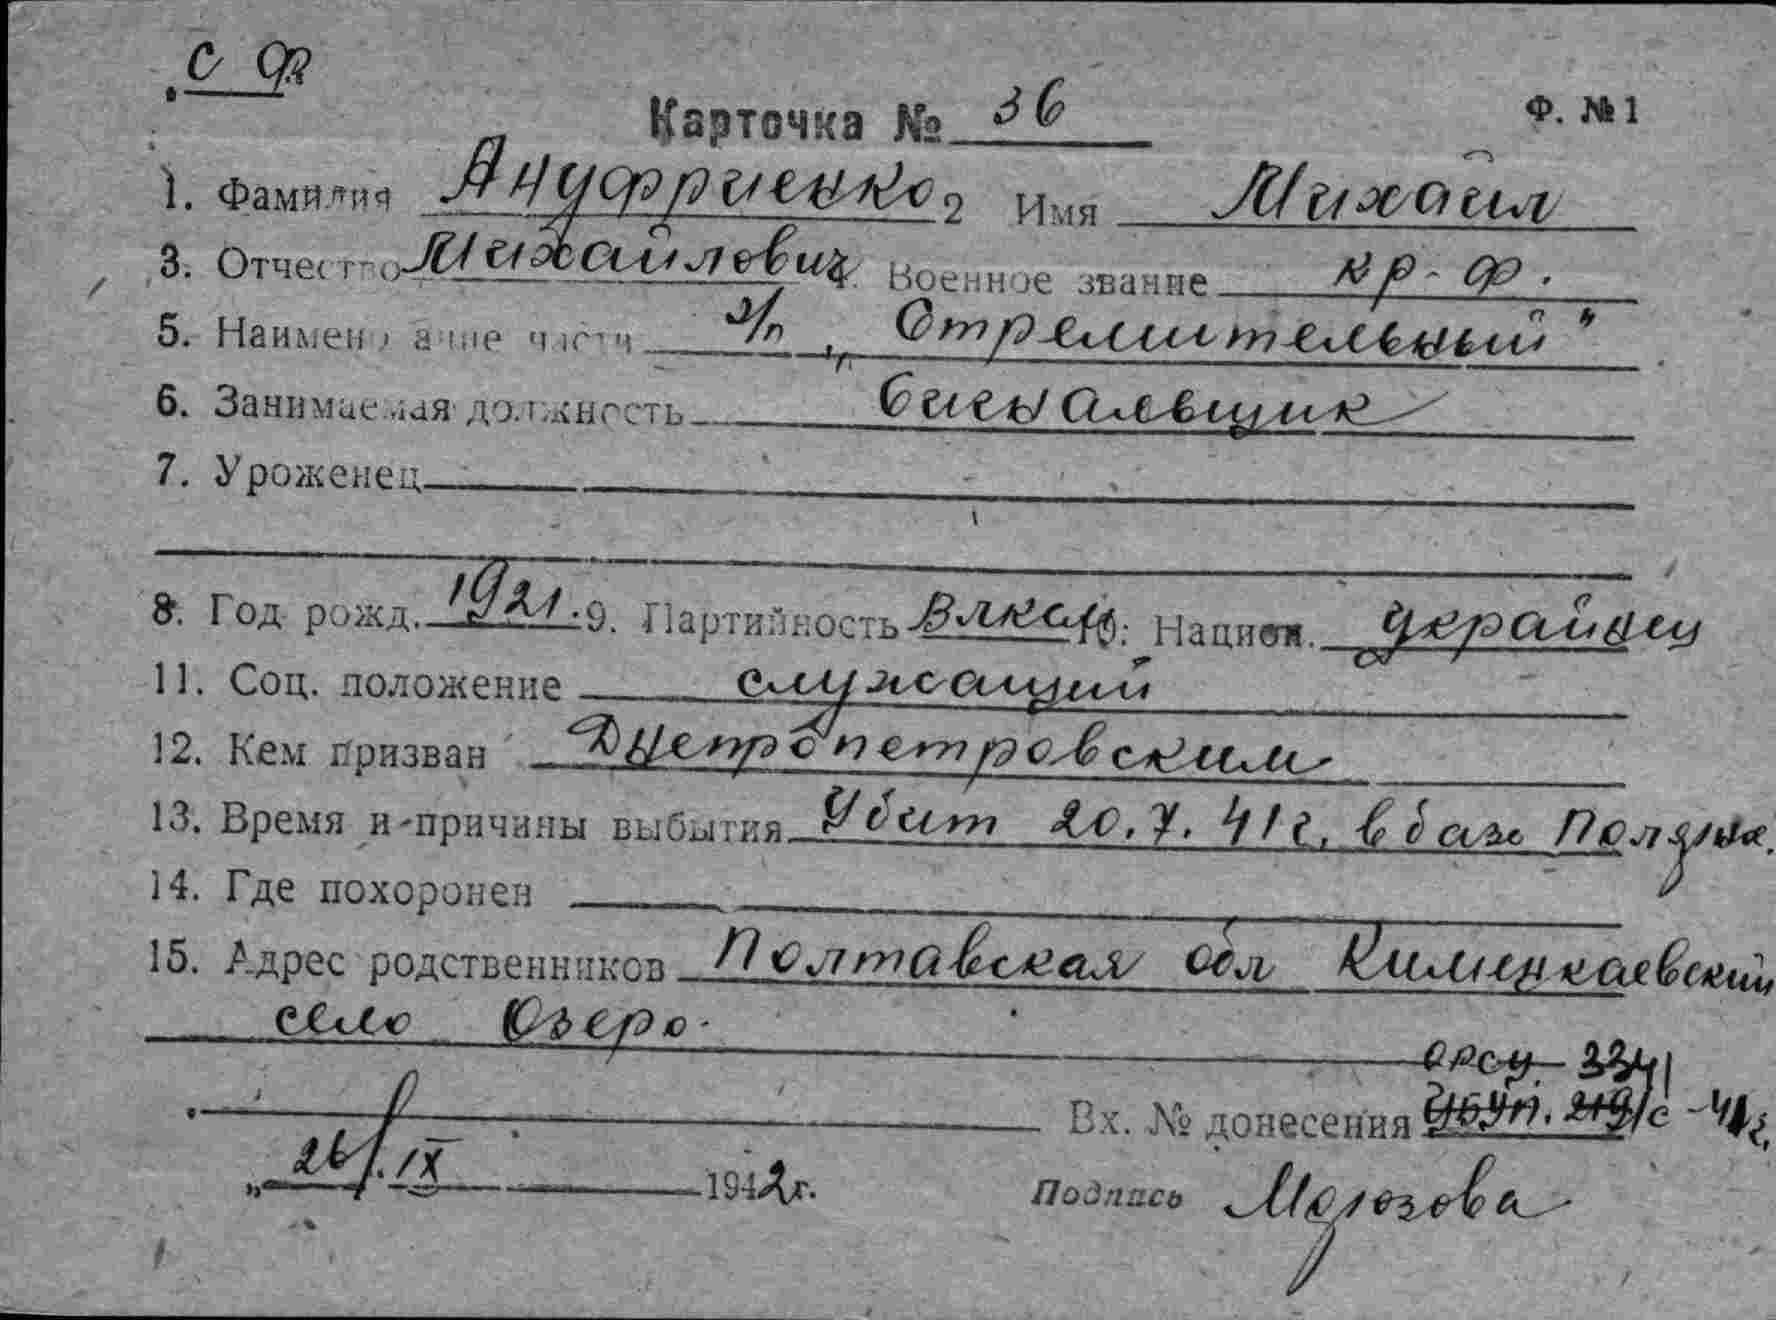 С Ф
Карточка № 36 Ф. № 1
1. Фамилия Ануфриенко 2 Имя Михаил
3. Отчество Михайлович 4. Военное звание кр-ф.
5. Наименование части э/п „Стремительный"
6. Занимаемая должность Сигнальщик
7. Уроженец
8. Год рожд. 1921. 9. Партийность ВЛКСМ 10. Национ. украинец
11. Соц. положение служащий
12. Кем призван Днепропетровским
13. Время и причины выбытия Убит 20.7.41г. в базе Полярное.
14. Где похоронен
15. Адрес родственников Полтавская обл
село Озеро.
334
Вх. № донесения 219/с -41г.
„26". IX 1942г. Подпись Морозова